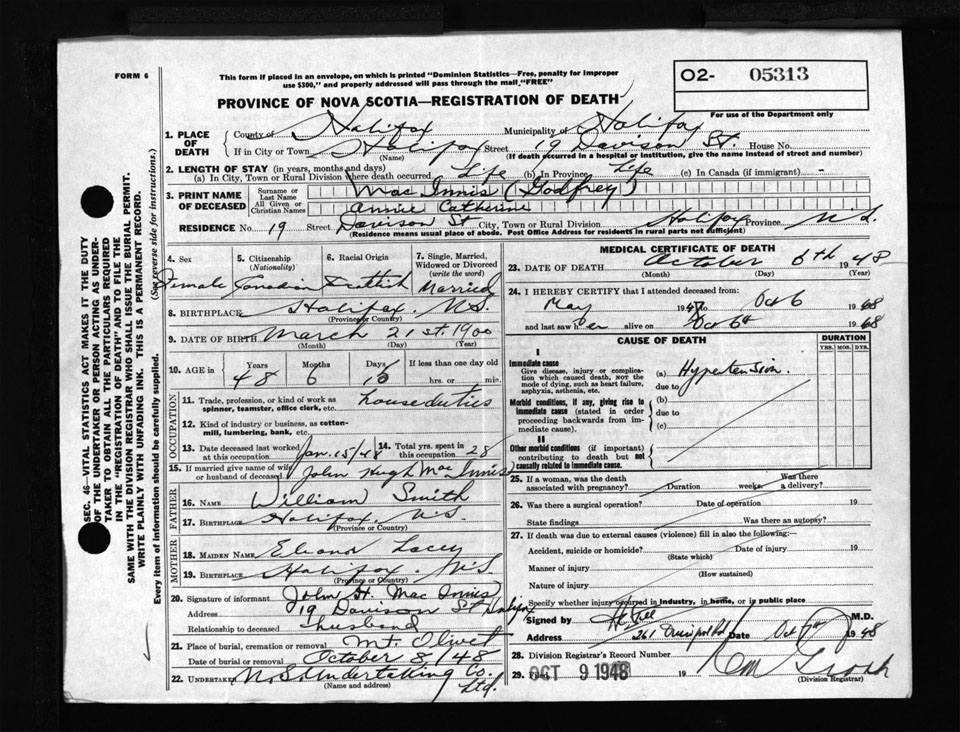 FORM 6
This form if placed in an envelope, on which is printed "Dominion Statistics—Free, penalty for improper
use $300," and properly addressed will pass through the mail "FREE"
O2- 05313
For use of the Department only
PROVINCE OF NOVA SCOTIA—REGISTRATION OF DEATH
1. PLACE OF DEATH
County of Halifax Municipality of Halifax
If in City or Town Halifax Street 19 Davison St. House No.
(Name) (If death occurred in a hospital or institution, give the name instead of street and number)
2. LENGTH OF STAY (in years, months and days)
(a) In City, Town or Rural Division where death occurred Life (b) in Province Life (c) In Canada (if immigrant) -
3. PRINT NAME OF DECEASED
Surname or Last Name Mac Innis (Godfrey)
All Given or Christian Names Annie Catherine
RESIDENCE No. 19 Street Davison St City, Town or Rural Division Halifax Province N.S.
(Residence means usual place of abode. Post Office Address for residents in rural parts not sufficient)
4. Sex
Female
5. Citizenship (Nationality)
Canadian
6. Racial Origin
Scottish
7. Single, Married, Widowed or Divorced (write the word)
Married
8. BIRTHPLACE Halifax, N.S.
(Province or Country)
9. DATE OF BIRTH March 21st. 1900
(Month) (Day) (Year)
10. AGE in Years 48 Months 6 Days If less than one day old
hrs. or min.
OCCUPATION
11. Trade, profession, or kind of work as spinner, teamster, office clerk, etc. house duties
12. Kind of industry or business, as cotton-mill, lumbering, bank, etc.
13. Date deceased last worked at this occupation Jan. 15/48
14. Total yrs. spent in this occupation 28
15. If married give name of wife or husband of deceased John Hugh Mac Innis
FATHER
16. NAME William Smith
17. BIRTHPLACE Halifax, N.S.
(Province or Country)
MOTHER
18. MAIDEN NAME Elianor Lacey
19. BIRTHPLACE Halifax, N.S.
(Province or Country)
20. Signature of informant John H. Mac Innis
Address 19 Davison St Halifax
Relationship to deceased husband
21. Place of burial, cremation or removal Mt. Olivet
Date of burial or removal October 8/48
22. UNDERTAKER N.S. Undertaking Co. Ltd.
(Name and address)
MEDICAL CERTIFICATE OF DEATH
23. DATE OF DEATH October 6th 1948
(Month) (Day) (Year)
24. I HEREBY CERTIFY that I attended deceased from:
May 194 to Oct 6 1948
and last saw her alive on Oct 6th 1948
CAUSE OF DEATH
DURATION
YRS. MOS. DYS.
I
Immediate cause
Give disease, injury or complication which caused death, NOT the mode of dying, such as heart failure, asphyxia, asthenia, etc.
(a) Hypertension.
due to
Morbid conditions, if any, giving rise to immediate cause (stated in order proceeding backwards from immediate cause).
(b)
due to
(c)
II
Other morbid conditions (if important) contributing to death but not causally related to immediate cause.
25. If a woman, was the death associated with pregnancy? Duration weeks Was there a delivery?
26. Was there a surgical operation? Date of operation 19
State findings Was there an autopsy?
27. If death was due to external causes (violence) fill in also the following:—
Accident, suicide or homicide? Date of injury 19
(State which)
Manner of injury
(How sustained)
Nature of injury
Specify whether injury occurred in industry, in home, or in public place
Signed by M.D.
Address 261 Date Oct 1948
28. Division Registrar's Record Number
29. Filed OCT 9 1948 19
(Division Registrar)
SEC. 46—VITAL STATISTICS ACT MAKES IT THE DUTY
OF THE UNDERTAKER OR PERSON ACTING AS UNDERTAKER
TO OBTAIN ALL THE PARTICULARS REQUIRED
IN THE "REGISTRATION OF DEATH" AND TO FILE THE
SAME WITH THE DIVISION REGISTRAR WHO SHALL ISSUE THE BURIAL PERMIT.
WRITE PLAINLY WITH UNFADING INK. THIS IS A PERMANENT RECORD.
Every item of information should be carefully supplied. (See reverse side for instructions.)